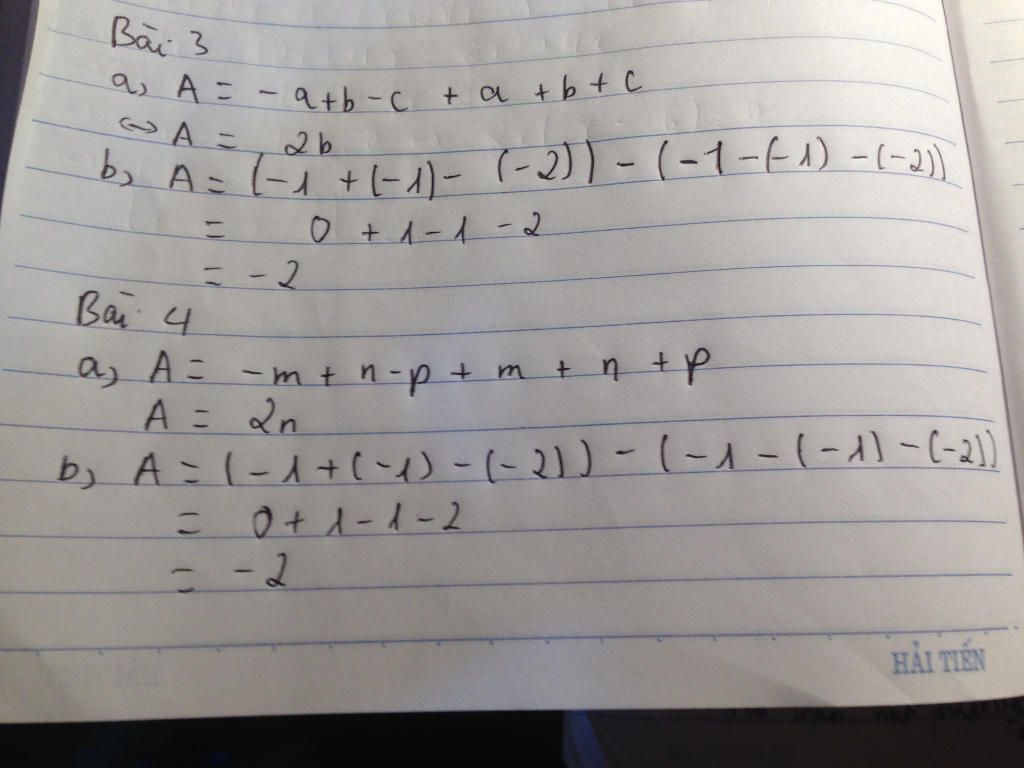 Bài 3
a, A = - a+b-c + a + b + c
<=> A = 2b
b, A = (-1 +(-1)- (-2)) - (-1 -(-1) -(-2))
= 0 + 1-1 -2
= -2
Bài 4
a, A = -m + n-p + m + n + p
A = 2n
b, A = (-1+(-1) -(-2)) - (-1 - (-1) -(-2))
= 0+1-1-2
= -2
HẢI TIẾN